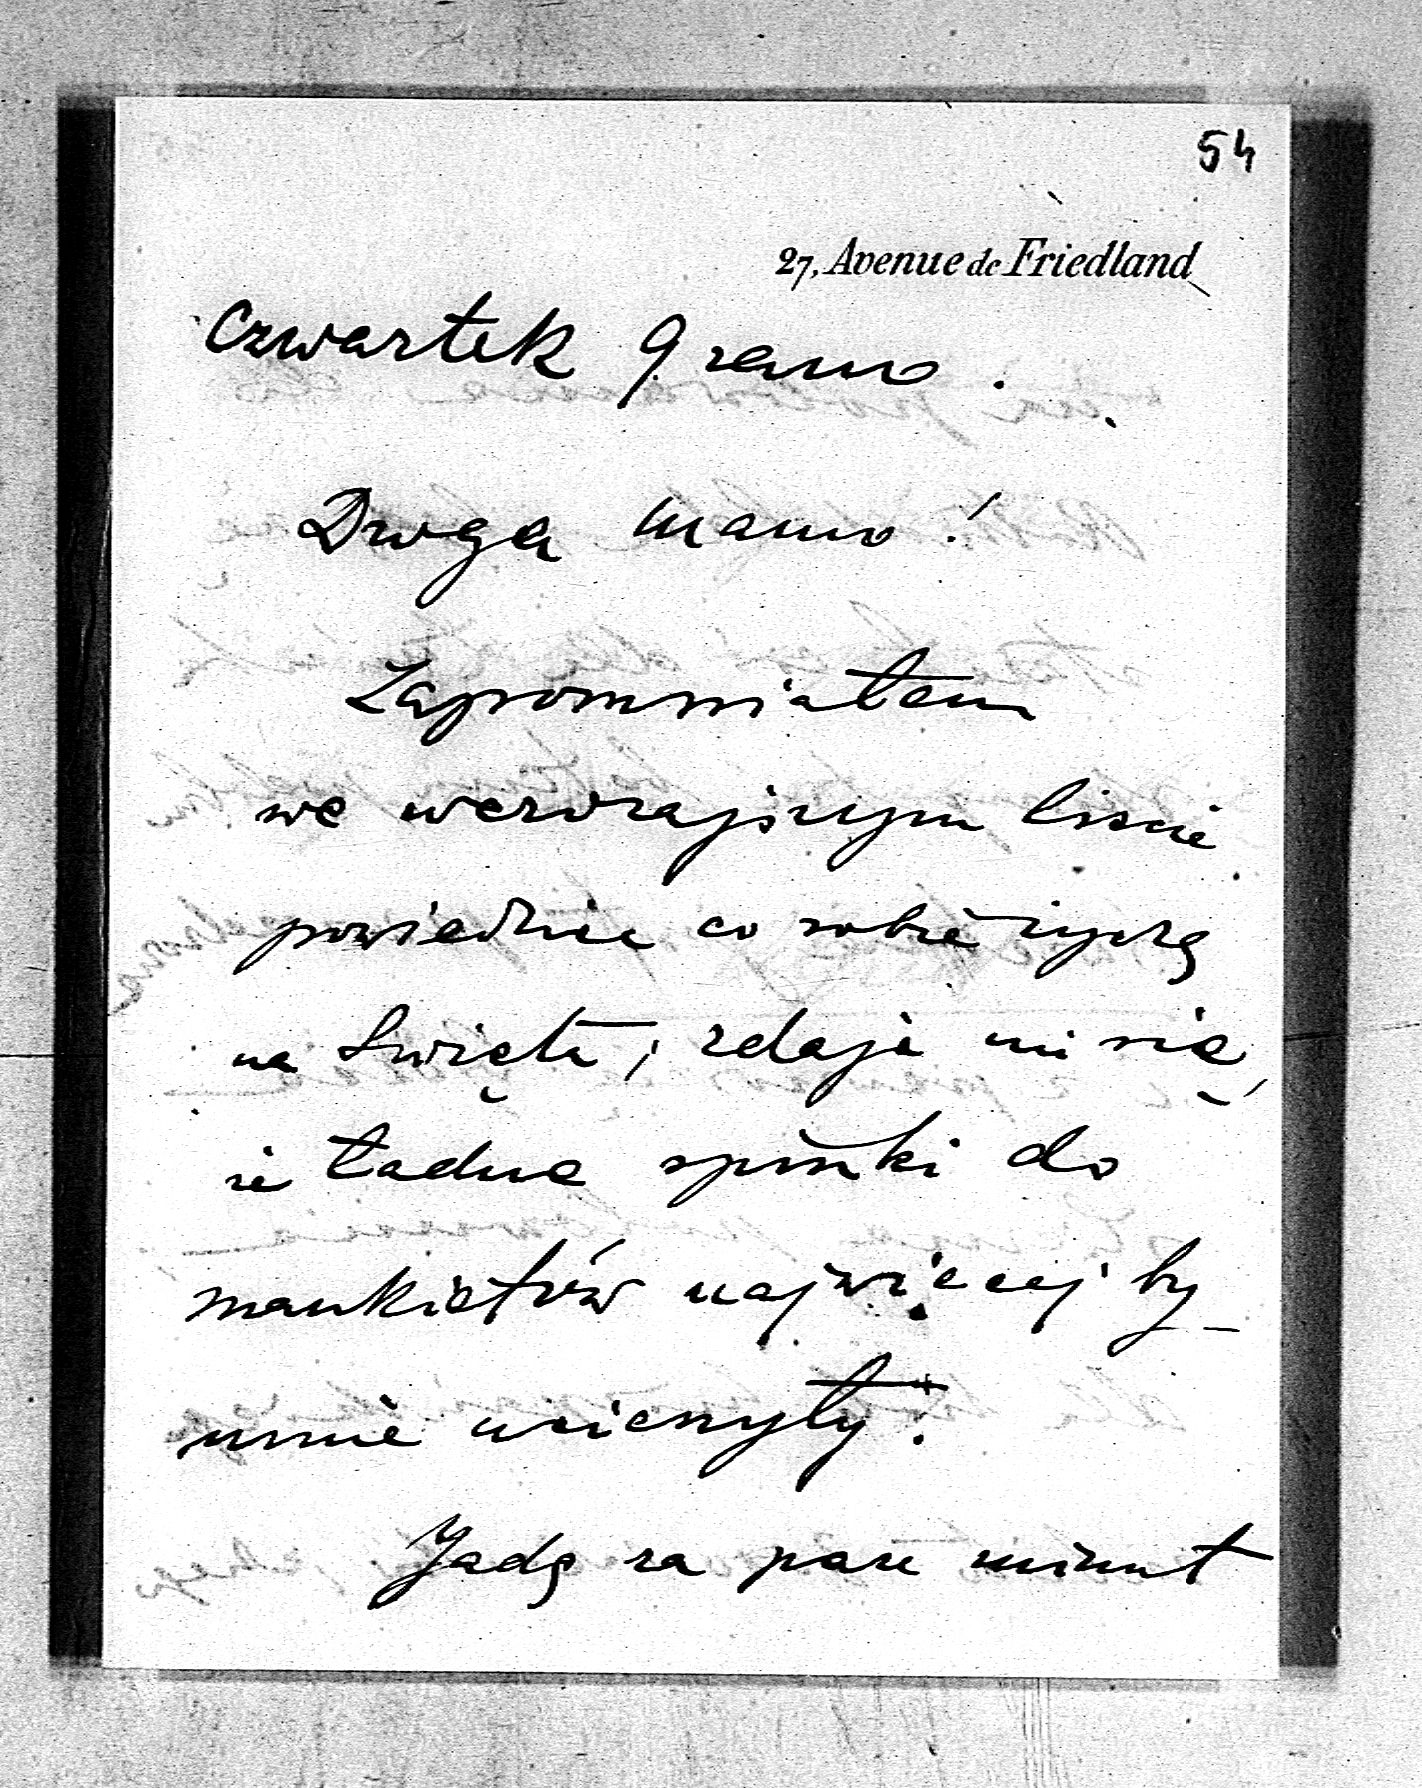 54
27, Avenue de Friedland
Czwartek 9 rano.
Droga mamo!
Zapomniałem
we wczorajszym liscie
powiedziec co sobie życzę
na Swięta; zdaje mi się,
że ładne spinki do
mankietów najwięcej by
mnie ucieszyły.
Jadę za parę minut